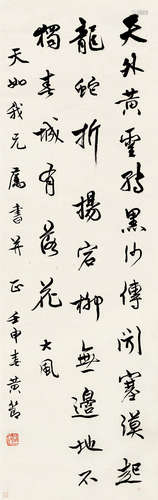 天外黃雲黑沙傳聞塞漠起
龍蛇折楊宕柳無邊地不
獨春城有落花 大風
天如我兄屬書并正 壬申春黃節